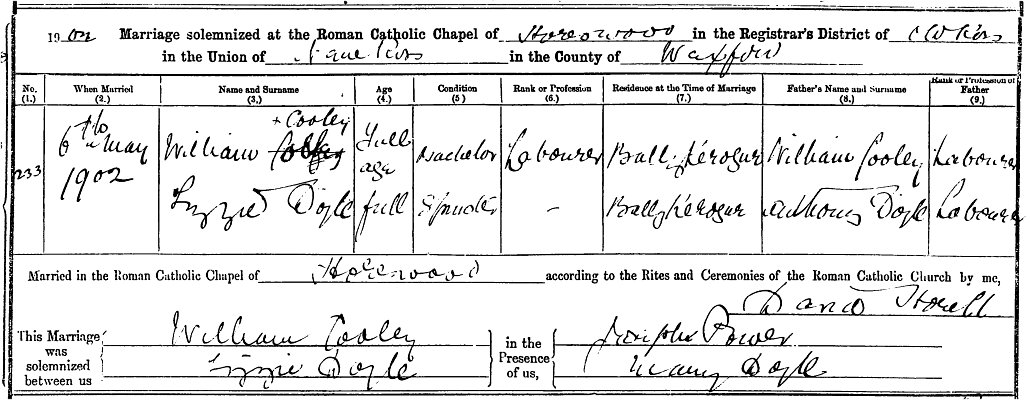 1902 Marriage solemnized at the Roman Catholic Chapel of Horeswood in the Registrar's District of
in the Union of New Ross in the County of Wexford
No. (1.) When Married (2.) Name and Surname (3.) Age (4.) Condition (5) Rank or Profession (6.) Residence at the Time of Marriage (7.) Father's Name and Surname (8.) Rank or Profession of Father (9.)
+ Cooley
233 6th May 1902 William Cooley Full age Bachelor Labourer Ballykerogue William Cooley Labourer
Lizzie Doyle full Spinster - Ballykerogue Anthony Doyle Labourer
Married in the Roman Catholic Chapel of Horeswood according to the Rites and Ceremonies of the Roman Catholic Church by me,
David
This Marriage was solemnized between us William Cooley in the Presence of us, Joseph Power
Lizzie Doyle Mary Doyle